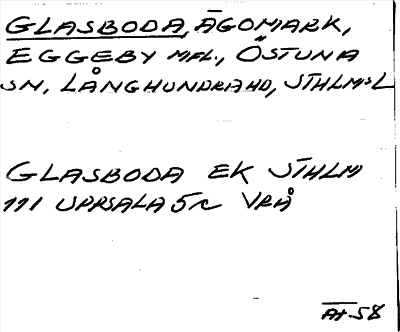 GLASBODA, ÄGOMARK,
EGGEBY MFL., ÖSTUNA
SN, LÅNGHUNDRAHD, STHLMSL
GLASBODA EK STHLM
111 UPPSALA 5c VRÅ
AH 58